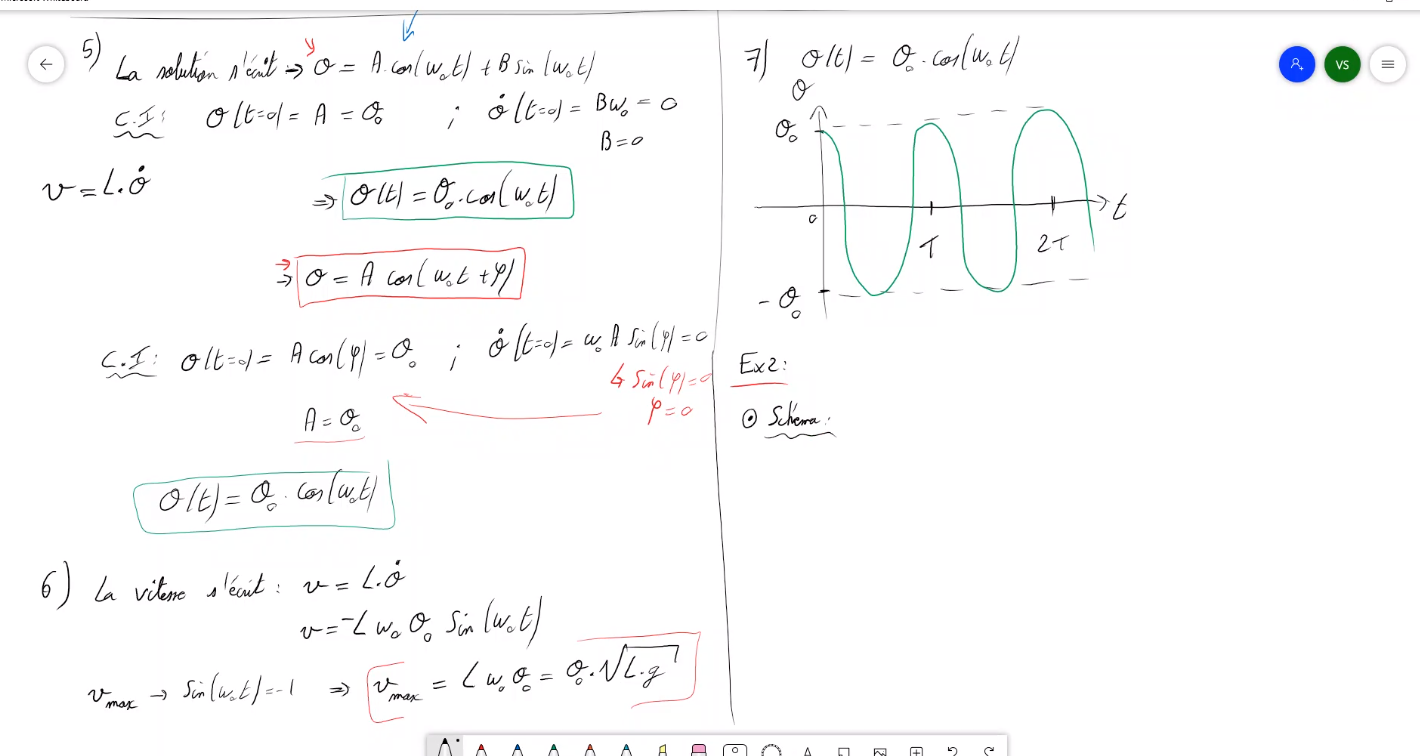 5) La solution s'écrit → θ = A.cos(ω₀t) + B sin(ω₀t)
C.I: θ(t=0) = A = θ₀ ; θ̇(t=0) = Bω₀ = 0
B=0
v = L.θ̇
⇒ θ(t) = θ₀.cos(ω₀t)
⇒ θ = A cos(ω₀t + φ)
C.I: θ(t=0) = A cos(φ) = θ₀ ; θ̇(t=0) = ω₀ A sin(φ) = 0
↳ Sin(φ) = 0
φ = 0
A = θ₀
θ(t) = θ₀ . cos(ω₀t)
6) La vitesse s'écrit : v = L.θ̇
v = -L ω₀ θ₀ Sin(ω₀t)
v_max → Sin(ω₀t) = -1 ⇒ v_max = L ω₀ θ₀ = θ₀.√L.g
7) θ(t) = θ₀ . cos(ω₀t)
θ
θ₀
0
T
2T
t
-θ₀
Ex2:
⊙ Schéma:
VS